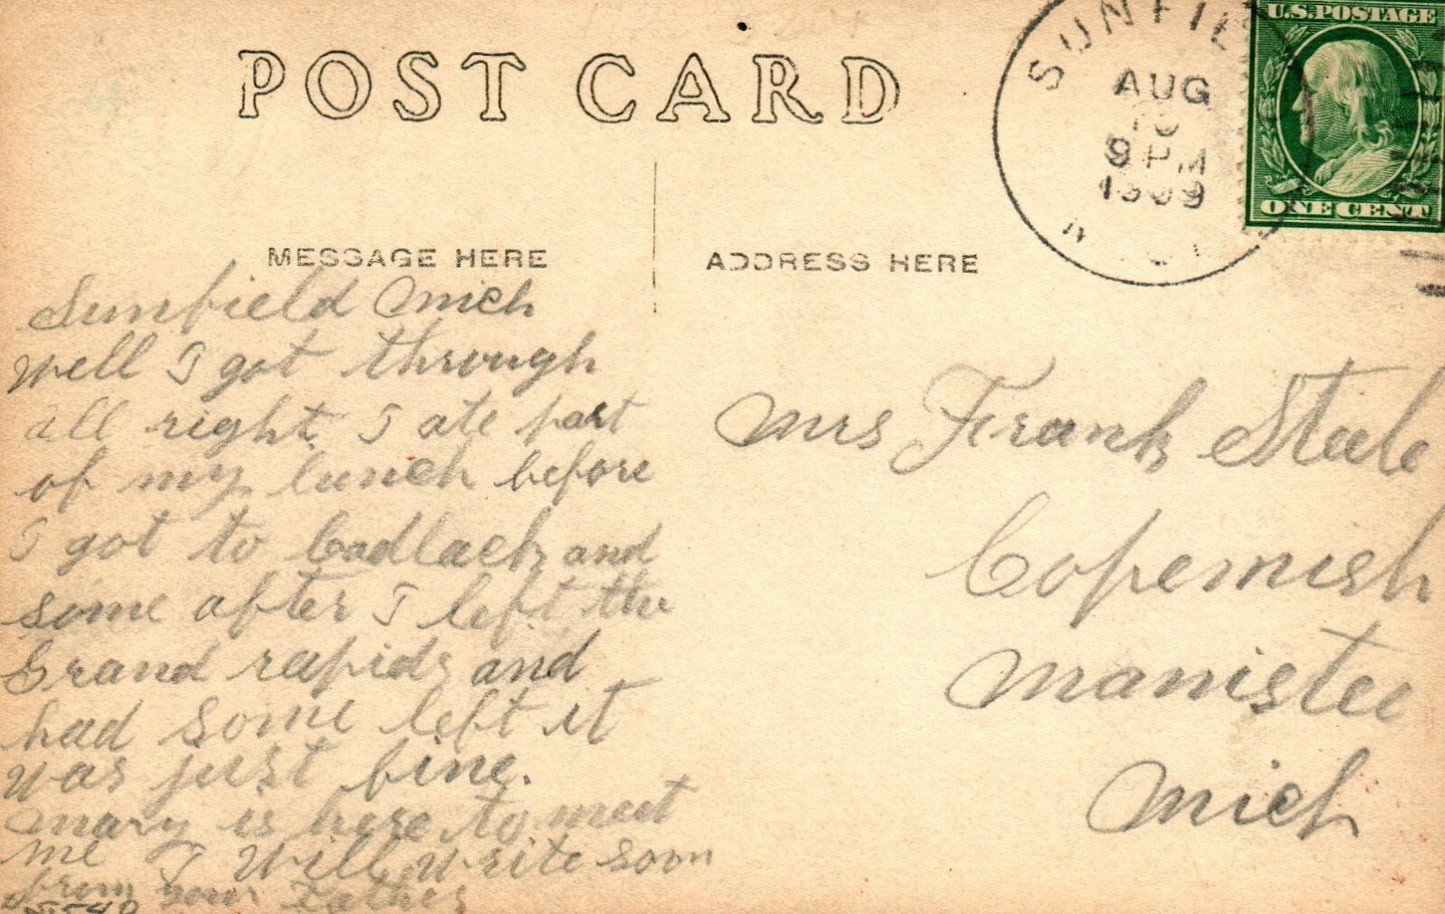 POST CARD
SUNFIE
AUG
10
9 PM
1909
U.S. POSTAGE
ONE CENT
MESSAGE HERE
ADDRESS HERE
Sunfield Mich
Well I got through
all right I ate part
of my lunch before
I got to Cadlack and
some after I left the
Grand rapids and
had some left it
was just fine.
mary is here to meet
me I will write soon
from your Father
Mrs Frank Steele
Copemish
Manistee
Mich